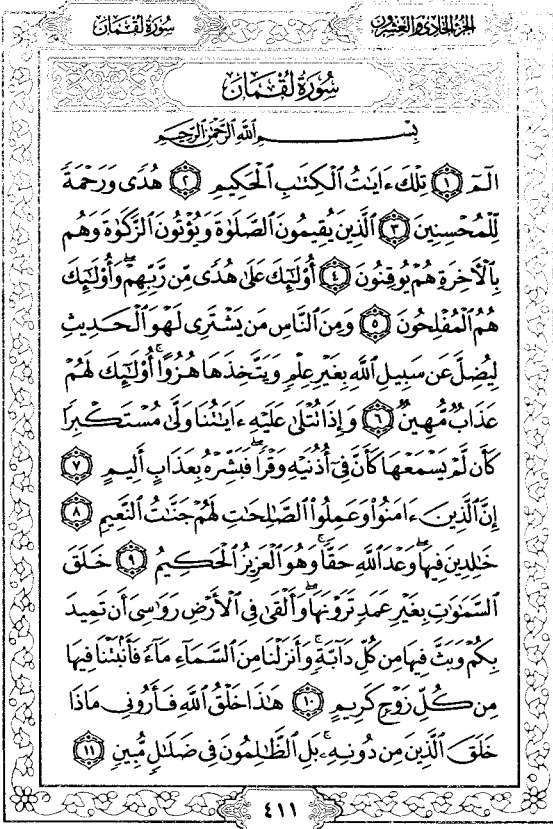 سُورَةُ لُقْمَان
الجُزْءُ الحَادِي وَالعِشْرُون
سُورَةُ لُقْمَان
بِسْمِ اللَّهِ الرَّحْمَٰنِ الرَّحِيمِ
الٓمٓ ١ تِلْكَ ءَايَٰتُ الْكِتَٰبِ الْحَكِيمِ ٢ هُدًى وَرَحْمَةً
لِّلْمُحْسِنِينَ ٣ الَّذِينَ يُقِيمُونَ الصَّلَوٰةَ وَيُؤْتُونَ الزَّكَوٰةَ وَهُم
بِالْأَخِرَةِ هُمْ يُوقِنُونَ ٤ أُوْلَٰٓئِكَ عَلَىٰ هُدًى مِّن رَّبِّهِمْ ۖ وَأُوْلَٰٓئِكَ
هُمُ الْمُفْلِحُونَ ٥ وَمِنَ النَّاسِ مَن يَشْتَرِى لَهْوَ الْحَدِيثِ
لِيُضِلَّ عَن سَبِيلِ اللَّهِ بِغَيْرِ عِلْمٍ وَيَتَّخِذَهَا هُزُوًا ۚ أُوْلَٰٓئِكَ لَهُمْ
عَذَابٌ مُّهِينٌ ٦ وَإِذَا تُتْلَىٰ عَلَيْهِ ءَايَٰتُنَا وَلَّىٰ مُسْتَكْبِرًا
كَأَن لَّمْ يَسْمَعْهَا كَأَنَّ فِىٓ أُذُنَيْهِ وَقْرًا ۖ فَبَشِّرْهُ بِعَذَابٍ أَلِيمٍ ٧
إِنَّ الَّذِينَ ءَامَنُوا۟ وَعَمِلُوا۟ الصَّٰلِحَٰتِ لَهُمْ جَنَّٰتُ النَّعِيمِ ٨
خَٰلِدِينَ فِيهَا ۖ وَعْدَ اللَّهِ حَقًّا ۚ وَهُوَ الْعَزِيزُ الْحَكِيمُ ٩ خَلَقَ
السَّمَٰوَٰتِ بِغَيْرِ عَمَدٍ تَرَوْنَهَا ۖ وَأَلْقَىٰ فِى الْأَرْضِ رَوَٰسِىَ أَن تَمِيدَ
بِكُمْ وَبَثَّ فِيهَا مِن كُلِّ دَآبَّةٍ ۚ وَأَنزَلْنَا مِنَ السَّمَآءِ مَآءً فَأَنۢبَتْنَا فِيهَا
مِن كُلِّ زَوْجٍ كَرِيمٍ ١٠ هَٰذَا خَلْقُ اللَّهِ فَأَرُونِى مَاذَا
خَلَقَ الَّذِينَ مِن دُونِهِۦ ۚ بَلِ الظَّٰلِمُونَ فِى ضَلَٰلٍ مُّبِينٍ ١١
٤١١